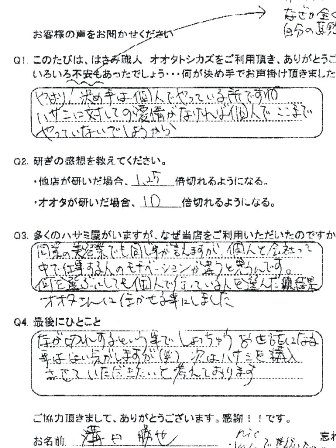 なぜか全く
自分の
お客様の声をお聞かせください
Q1. このたびは、はさみ職人 オオタトシカズをご利用頂き、ありがとうご
いろいろ不安もあったでしょう・・・何が決め手でお声掛け頂きました
やはり!決め手は個人でやっている所ですが
ハサミに対しての愛情がなければ個人でここまで
やっていないでしょうから
Q2. 研ぎの感想を教えてください。
・他店が研いだ場合、 1.25 倍切れるようになる。
・オオタが研いだ場合、 10 倍切れるようになる。
Q3. 多くのハサミ屋がいますが、なぜ当店をご利用いただいたのですか
同業の美容業でも同じ事が言えますが 個人と会社って
中で仕事する人のモチベーションが違うと思うんです。
何を選ぶにしても個人で行っている人を選んだ結果
オオタさんにまかせる事にしました
Q4. 最後にひとこと
なか切れするという事で しょっちゅうお世話になる
事はないと思いますが(笑) 次はハサミを購入
させていただきたいと考えております
ご協力頂きまして、ありがとうございます。感謝!!です。
お名前